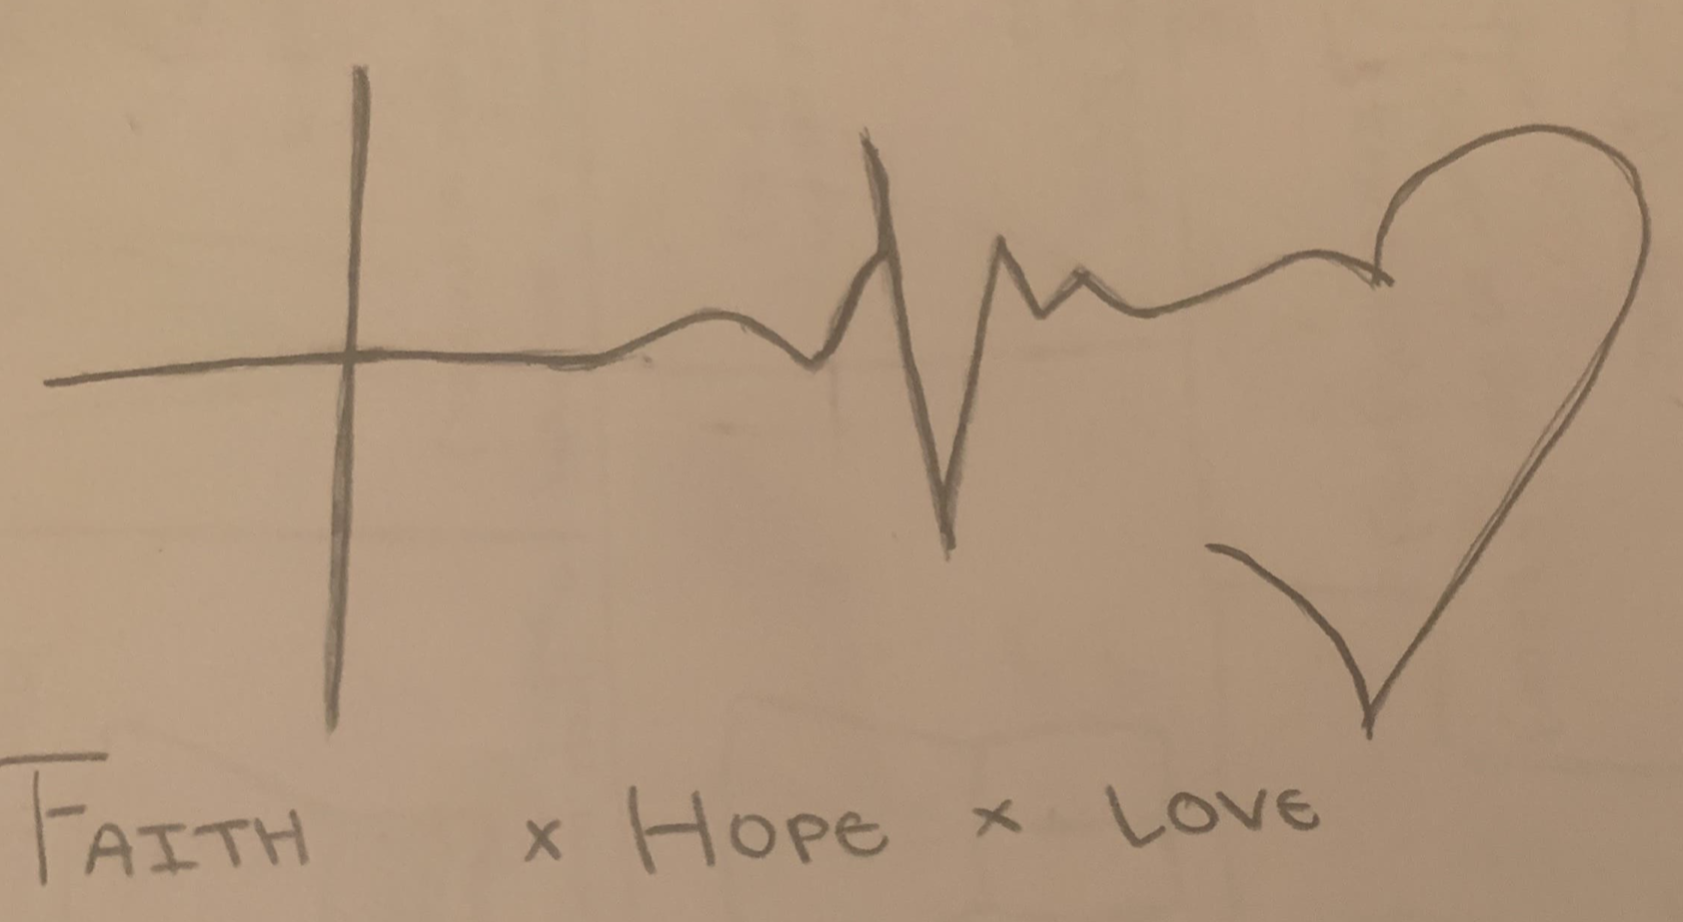 FAITH x HOPE x LOVE